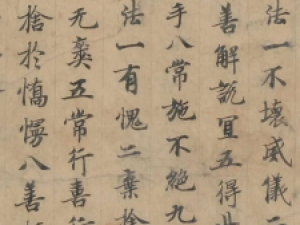 法一不壞威儀二
善解説宜五得此
手八常施不絶九
法一有愧二棄捨
无棄五常行喜行
捨於憍慢八善